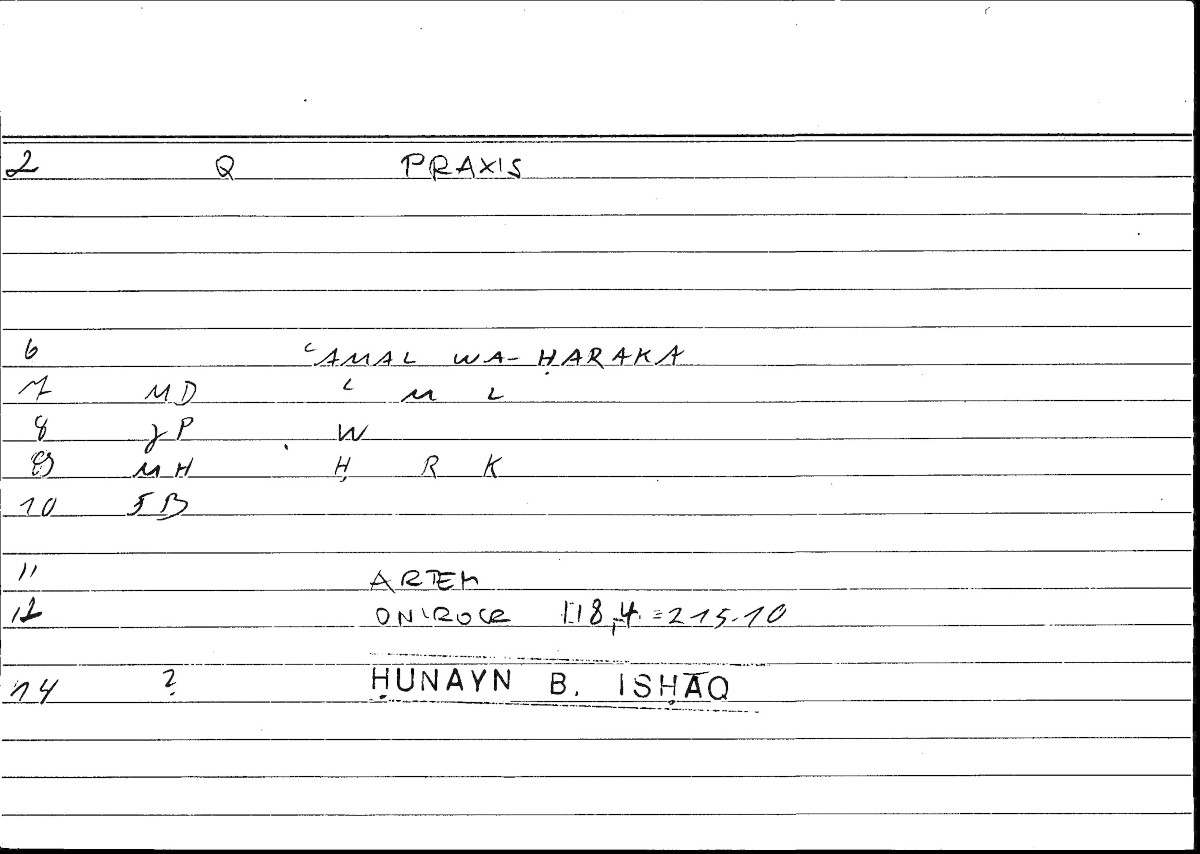 2 Q PRAXIS
6 ʿAMAL WA-ḤARAKA
7 MD ʿ M L
8 γP W
9 MH Ḥ R K
10 5B
11 ARTEM
12 ONIROCR 118,4.=215.10
14 ? ḤUNAYN B. ISḤĀQ